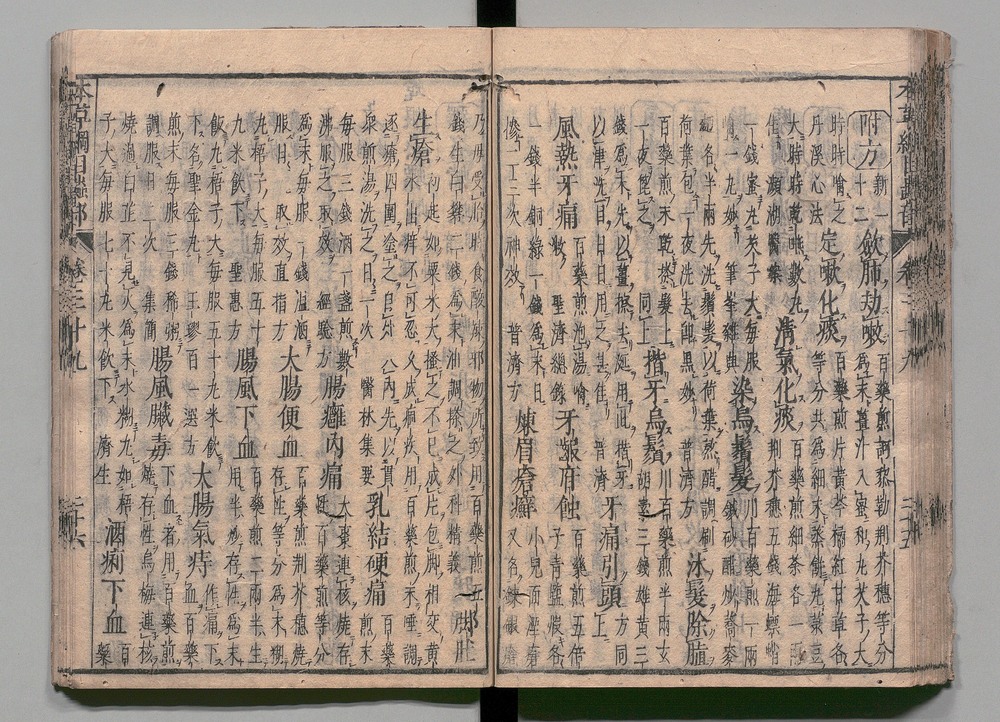 附方 新二十二 斂肺劫嗽 百藥煎訶黎勒荊芥穗等分
爲末薑汁入蜜和丸芡子大
時時噙之 丹溪心法 定嗽化痰 百藥煎片黃芩橘紅甘草各
等分共爲細末蒸餅丸菉豆
大時時乾咽數丸
佳 瀕湖醫案 清氣化痰 百藥煎細茶各一兩
荊芥穗五錢海螵蛸
一錢蜜丸芡子大每服
噙一丸妙 筆峯雜興 染烏鬚髮 川百藥煎一兩
鍼砂醋炒蕎麥
麪各半兩先洗鬚髮以荷葉熬醋調刷
荷葉包一夜洗去即黑妙 普濟方 沐髮除脂
百藥煎末乾搽髮上
一夜篦之 同上 揩牙烏鬚 川百藥煎半兩玄
胡索三錢雄黃三
錢爲末先以薑擦去涎用此揩牙
以津洗目日日用之甚佳 普濟 牙痛引頭 方同
上
風熱牙痛 百藥煎泡湯噙
漱 聖濟總錄 牙齦疳蝕 百藥煎五倍
子青鹽煅各
一錢半銅綠一錢爲末日
摻一二次神效 普濟方 煉眉瘡癬 小兒面湮瘡
又名煉銀瘡
乃母受胎時食酸辣邪物所致用百藥煎五
錢生白礬二錢爲末油調搽之 外科精義 脚肚
生瘡 初起如粟米大搔之不已成片包脚相交黃
水出痒不可忍久成痼疾用百藥煎末唾調
逐瘡四圍塗之自外入內先以貫
衆煎湯洗之日一次 醫林集要 乳結硬痛 百藥煎末
每服三錢酒一盞煎數
沸服之取效 經驗方 腸癰內痛 大棗連核燒存
性百藥煎等分
爲末每服一錢溫酒
服日一取效 直指方 大腸便血 百藥煎荊芥穗燒
存性等分爲末糊
丸梧子大每服五十
丸米飲下 聖惠方 腸風下血 百藥煎二兩半生
用半炒存性爲末
飯丸梧子大每服五十丸米飲
下名聖金丸 王璆百一選方 大腸氣痔 作痛下
血百藥
煎末每服三錢稀粥
調服日二次 集簡 腸風臟毒 下血者用百藥煎
燒存性烏梅連核
燒過白芷不見火爲末水糊丸如梧
子大每服七十丸米飲下 濟生 酒痢下血 百
藥
本草綱目 卷三十九 二十六